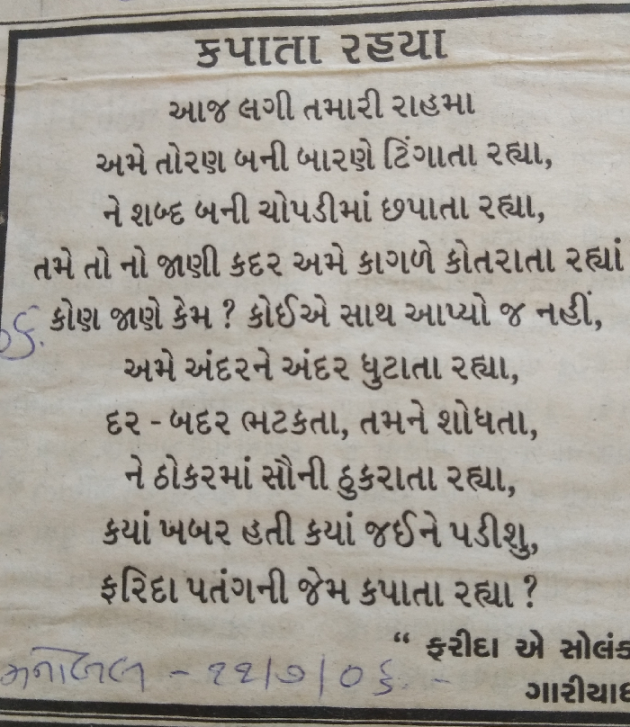 કપાતા રહયા
આજ લગી તમારી રાહમા
અમે તોરણ બની બારણે ટિંગાતા રહ્યા,
ને શબ્દ બની ચોપડીમાં છપાતા રહ્યા,
તમે તો નો જાણી કદર અમે કાગળે કોતરાતા રહ્યાં
કોણ જાણે કેમ ? કોઈએ સાથ આપ્યો જ નહીં,
અમે અંદરને અંદર ધુટાતા રહ્યા,
દર - બદર ભટકતા, તમને શોધતા,
ને ઠોકરમાં સૌની ઠુકરાતા રહ્યા,
કયાં ખબર હતી કયાં જઈને પડીશુ,
ફરિદા પતંગની જેમ કપાતા રહ્યા ?
“ ફરીદા એ સોલંક
ગારીયાધ
- ૨૨/૭/૦૬. -